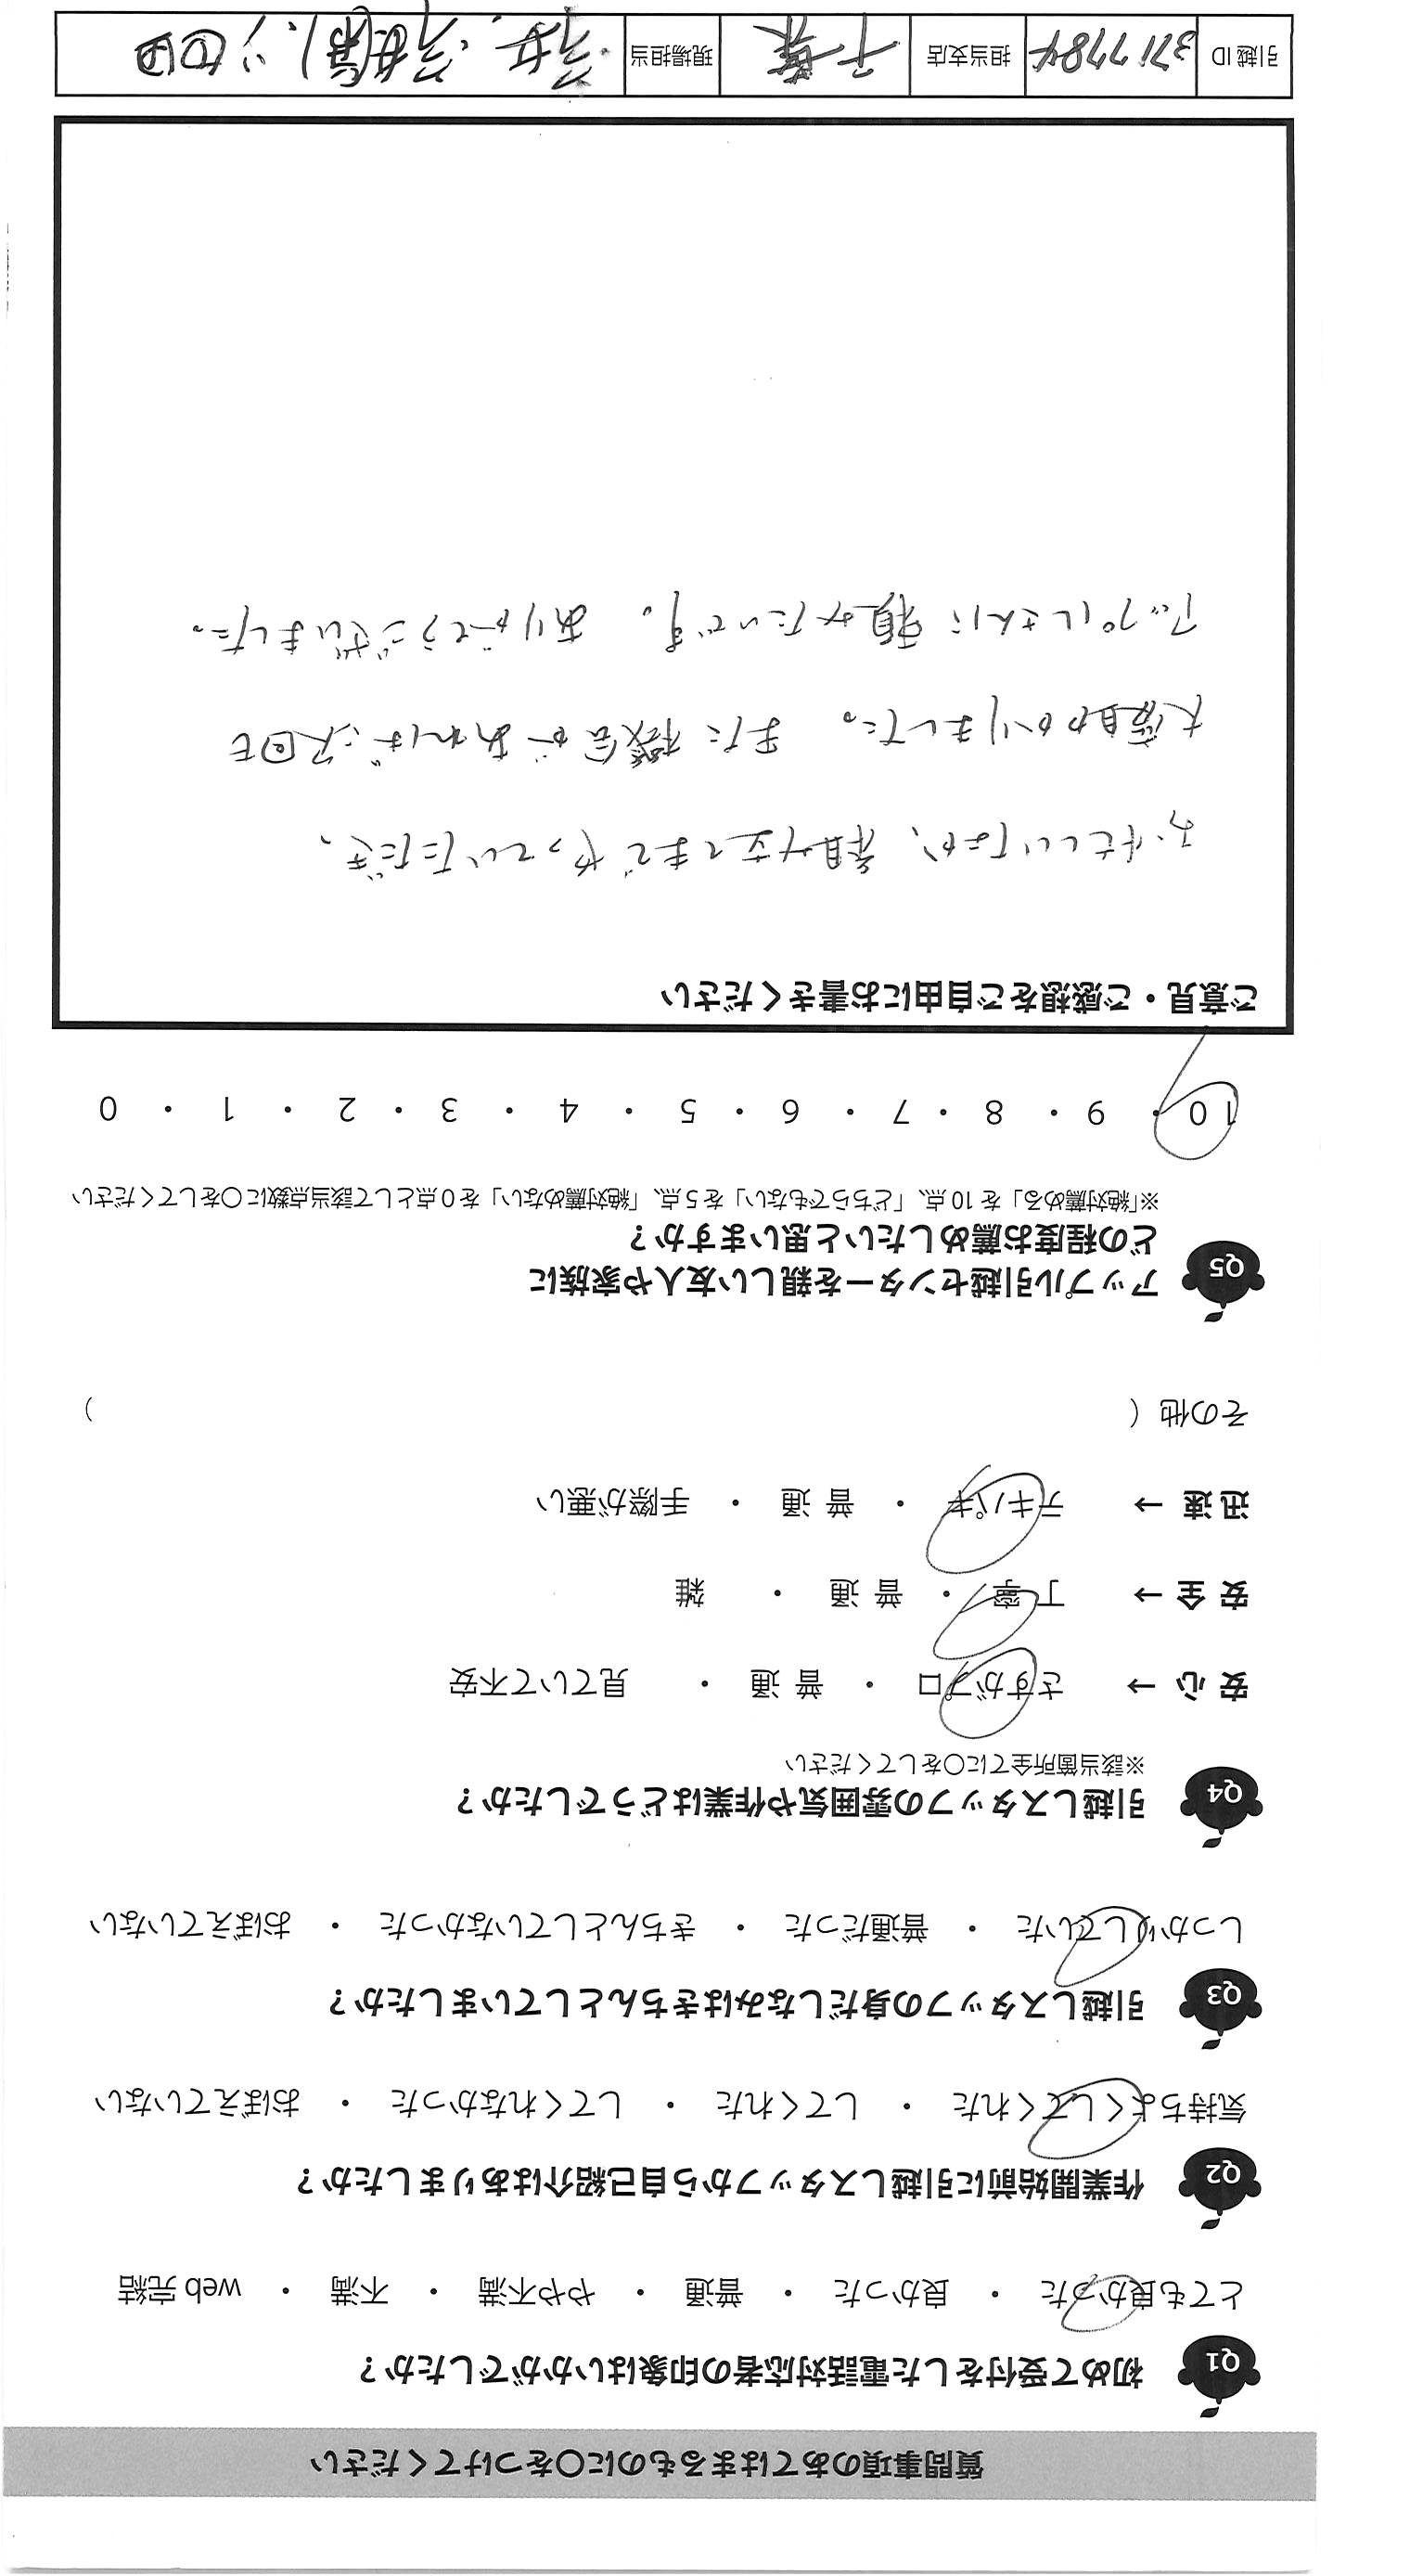 質問事項のあてはまるものに○をつけてください
Q1 初めて受付をした電話対応者の印象はいかがでしたか？
とても良かった ・ 良かった ・ 普通 ・ やや不満 ・ 不満 ・ web 完結
Q2 作業開始前に引越しスタッフから自己紹介はありましたか？
気持ちよくしてくれた ・ してくれた ・ してくれなかった ・ おぼえていない
Q3 引越しスタッフの身だしなみはきちんとしていましたか？
しっかりしていた ・ 普通だった ・ きちんとしていなかった ・ おぼえていない
Q4 引越しスタッフの雰囲気や作業はどうでしたか？
※該当箇所全てに○をしてください
安 心 → さすがプロ ・ 普 通 ・ 見ていて不安
安 全 → 丁 寧 ・ 普 通 ・ 雑
迅 速 → テキパキ ・ 普 通 ・ 手際が悪い
その他（ ）
Q5 アップル引越センターを親しい友人や家族に
どの程度お薦めしたいと思いますか？
※「絶対薦める」を 10 点、「どちらでもない」を 5 点、「絶対薦めない」を 0 点として該当点数に○をしてください
10 ・ 9 ・ 8 ・ 7 ・ 6 ・ 5 ・ 4 ・ 3 ・ 2 ・ 1 ・ 0
ご意見・ご感想をご自由にお書きください
お忙しいなか、組み立てまでやっていただき、
大変助かりました。 また機会があれば次回も
アップルさんに頼みたいです。 ありがとうございました。
引越 ID 3717784 担当支店 千葉 現場担当